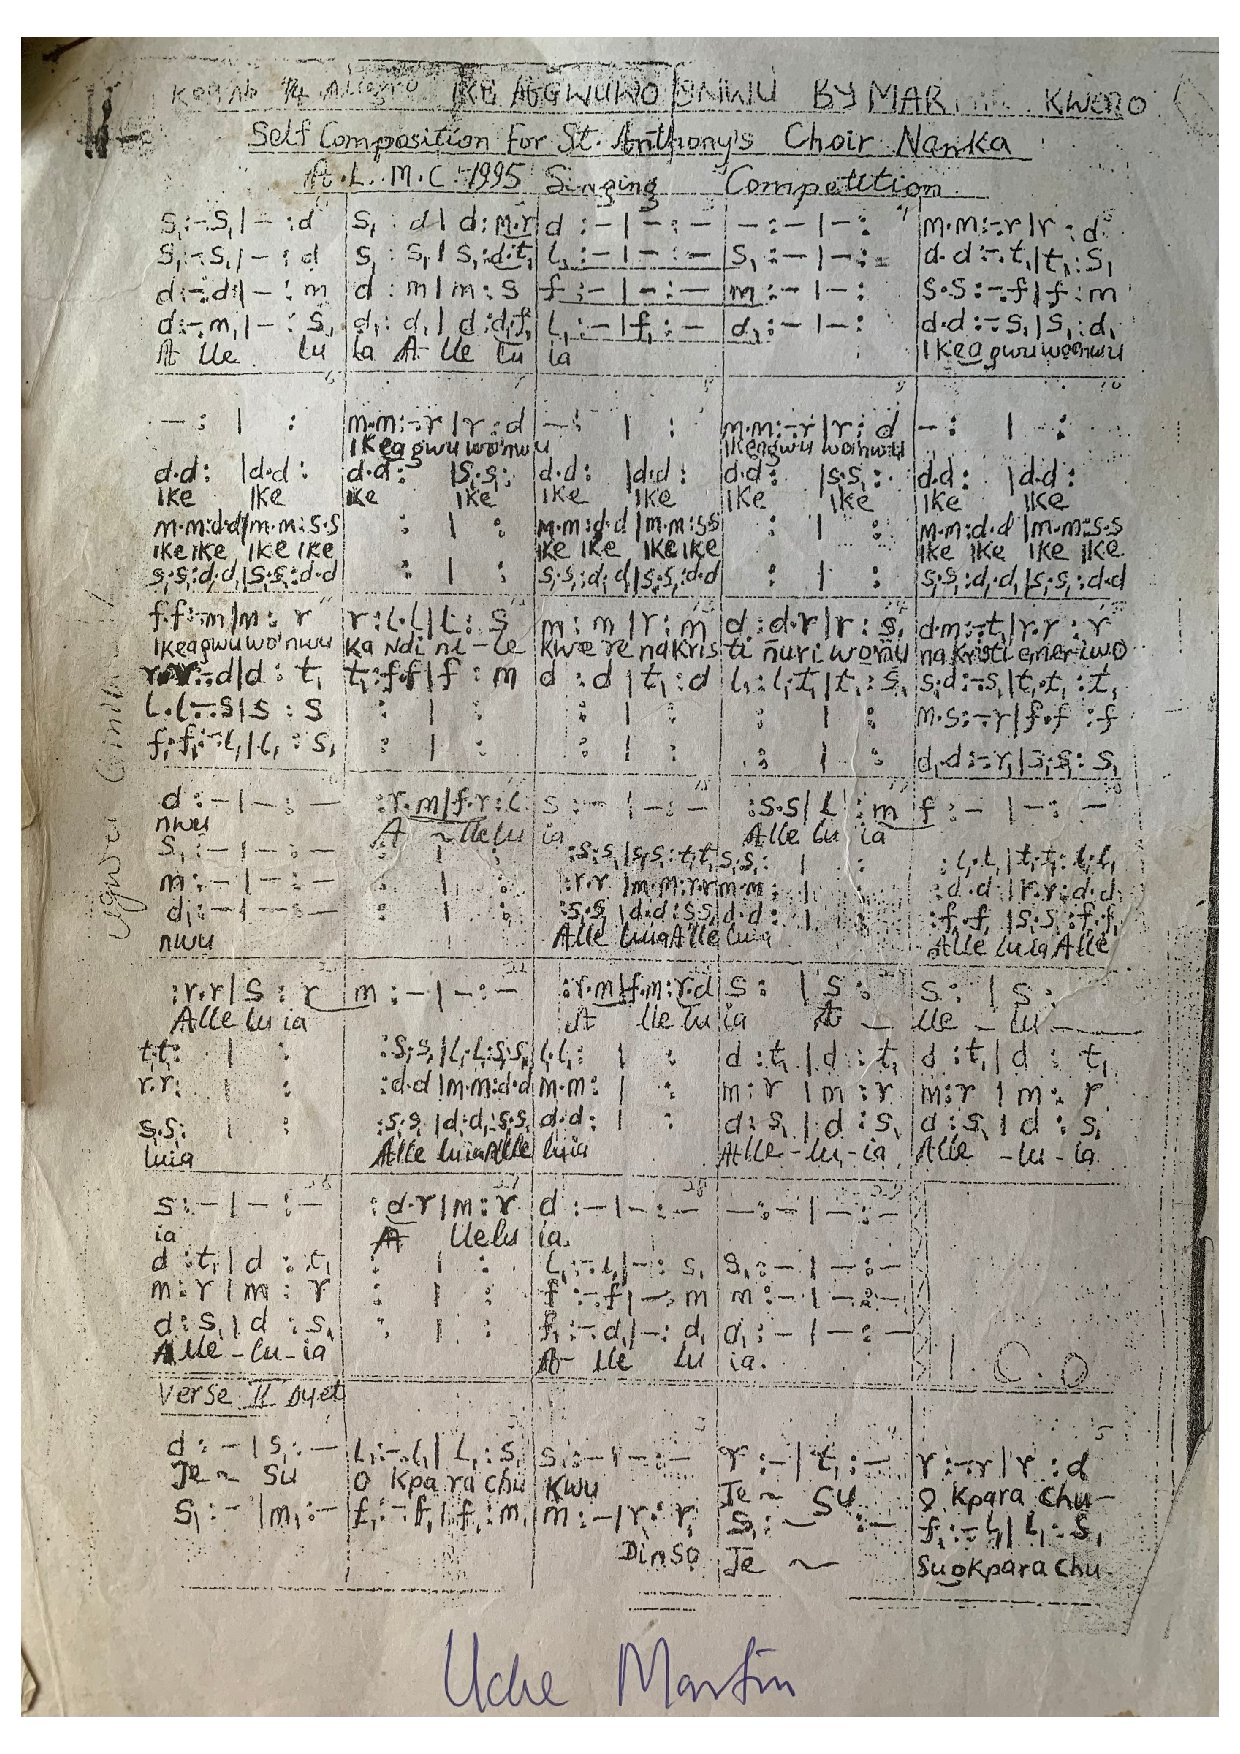 Allegro IKE AGWUWO ONWU BY MAR KWOZO
Self Composition For St. Anthony's Choir Nanka
A.L.M.C. 1995 Singing Competition
s₁:-.s₁|-:d s₁:d|d:m.r d:-|-:- -:-|-: m.m:-.r|r:d
s₁:-.s₁|-:d s₁:s₁|s₁:d.t₁ l₁:-|-:- s₁:-|-:- d.d:-.t₁|t₁:s₁
d:-.d|-:m d:m|m:s f:-|-:- m:-|-: s.s:-.f|f:m
d:-.m₁|-:s₁ d₁:d₁|d:d.f₁ l₁:-|f₁:- d₁:-|-: d.d:-.s₁|s₁:d₁
A lle lu ia A-lle lu ia Ikeagwuwoonwu
-: | : m.m:-.r|r:d -: | : m.m:-.r|r:d -: | -:
Ikeagwuwo'nwu Ikeagwuwo'nwu
d.d: |d.d: d.d: |s₁.s₁: d.d: |d.d: d.d: |s₁.s₁: d.d: |d.d:
Ike Ike Ike Ike Ike Ike Ike Ike Ike Ike
m.m:d.d|m.m:s.s : | : m.m:d.d|m.m:s.s : | : m.m:d.d|m.m:s.s
Ike Ike Ike Ike Ike Ike Ike Ike Ike Ike Ike Ike
s₁.s₁:d₁.d₁|s₁.s₁:d.d : | : s₁.s₁:d₁.d₁|s₁.s₁:d.d : | : s₁.s₁:d₁.d₁|s₁.s₁:d.d
f.f:-.m|m:r r:l.l|l:s m:m|r:m d:d.r|r:s₁ d.m:-.t₁|r.r:r
Ikeagwuwo'nwu Ka Ndi ni-le kwe re nakris ti ñuri woñu na kristi emeriwo
r.r:-.d|d:t₁ t₁:f.f|f:m d:d|t₁:d l₁:l₁.t₁|t₁:s₁ s₁.d:-.s₁|t₁.t₁:t₁
l.l:-.s|s:s : | : : | : : | : m.s:-.r|f.f:f
f₁.f₁:-.l₁|l₁:s₁ : | : : | : : | : d₁.d:-.r₁|s₁.s₁:s₁
d:-|-:- :r.m|f.r:l s:-|-:- :s.s|l:m f:-|-:-
nwu A lle lu ia Alle lu ia
s₁:-|-:- : | : :s₁.s₁|s₁.s₁:t₁.t₁ s₁.s₁: | : :l₁.l₁|t₁.t₁:l₁.l₁
m:-|-:- : | : :r.r|m.m:r.r m.m: | : :d.d|r.r:d.d
d₁:-|-:- : | : :s₁.s₁|d.d:s₁.s₁ d.d: | : :f₁.f₁|s₁.s₁:f₁.f₁
nwu Alle luia Alle luia Alle lu ia Alle
:r.r|s:r m:-|-:- :r.m|f.m:r.d s: |s: s: |s:
Alle lu ia A lle lu ia A lle - lu
t₁.t₁: | : :s₁.s₁|l₁.l₁:s₁.s₁ l₁.l₁: | : d:t₁|d:t₁ d:t₁|d:t₁
r.r: | : :d.d|m.m:d.d m.m: | : m:r|m:r m:r|m:r
s₁.s₁: | : :s₁.s₁|d₁.d₁:s₁.s₁ d.d: | : d:s₁|d:s₁ d:s₁|d:s₁
luia Alle luia Alle luia Alle-lu-ia Alle-lu-ia
s:-|-:- :d.r|m:r d:-|-:- -:-|-:-
ia A llelu ia.
d:t₁|d:t₁ : | : l₁:-.l₁|-:s₁ s₁:-|-:-
m:r|m:r : | : f:-.f|-:m m:-|-:-
d:s₁|d:s₁ : | : f₁:-.d₁|-:d₁ d₁:-|-:-
Alle-lu-ia A- lle lu ia.
Verse II Duet
d:-|s₁:- l₁:-.l₁|l₁:s₁ s₁:-|-:- r:-|t₁:- r:-.r|r:d
Je ~ Su O Kpara chu kwu Je ~ Su O Kpara Chu-
s₁:-|m₁:- f₁:-.f₁|f₁:m₁ m:-|r₁:r₁ s₁:- :- f₁:-.l₁|l₁:s₁
Dinso Je ~ Su O Kpara Chu
Uche Martin